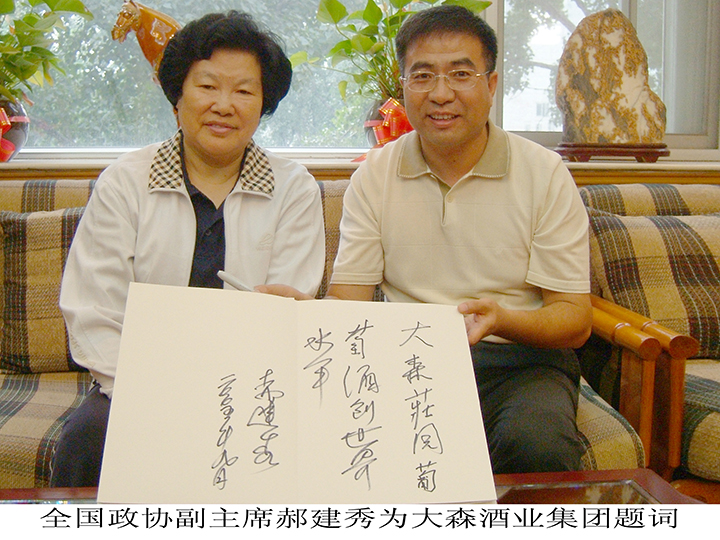 大森莊园葡
萄酒创世界
水平
郝建秀
全国政协副主席郝建秀为大森酒业集团题词